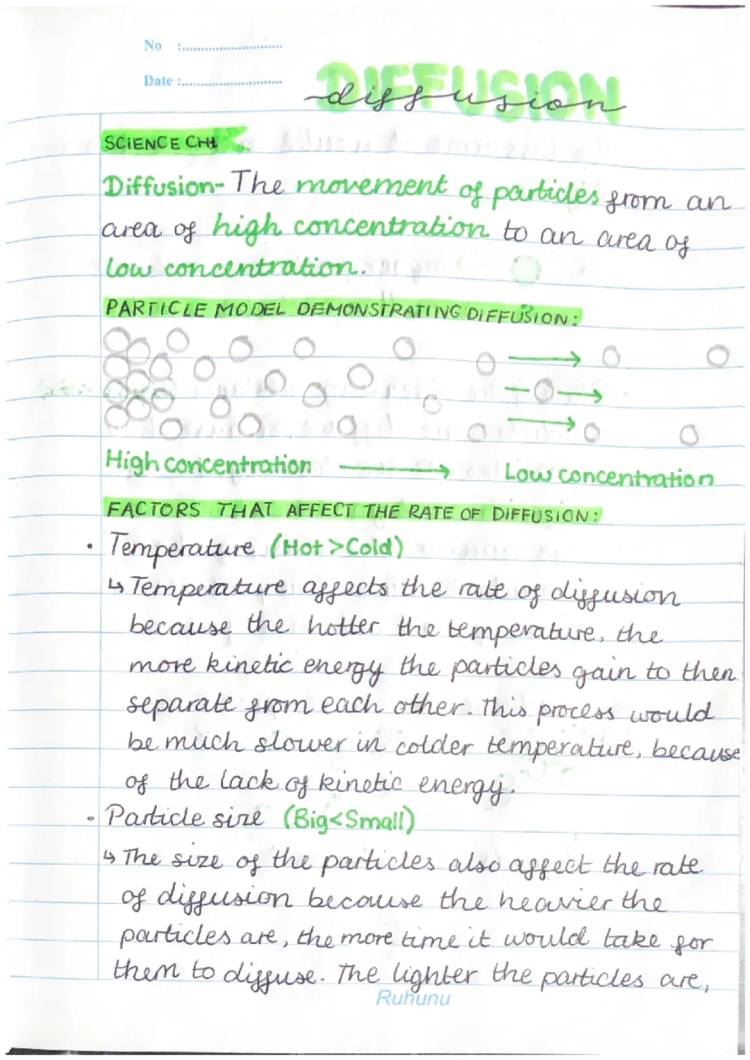 No :............................
Date :............................
DIFFUSION
diffusion
SCIENCE CH1
Diffusion- The movement of particles from an
area of high concentration to an area of
low concentration.
PARTICLE MODEL DEMONSTRATING DIFFUSION:
High concentration → Low concentration
FACTORS THAT AFFECT THE RATE OF DIFFUSION:
• Temperature (Hot >Cold)
↳ Temperature affects the rate of diffusion
because the hotter the temperature, the
more kinetic energy the particles gain to then
separate from each other. This process would
be much slower in colder temperature, because
of the lack of kinetic energy.
• Particle size (Big<Small)
↳ The size of the particles also affect the rate
of diffusion because the heavier the
particles are, the more time it would take for
them to diffuse. The lighter the particles are,
Ruhunu